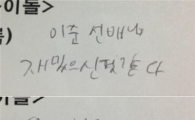 이돌>
목)
이준 선배님
재밌으신것같다